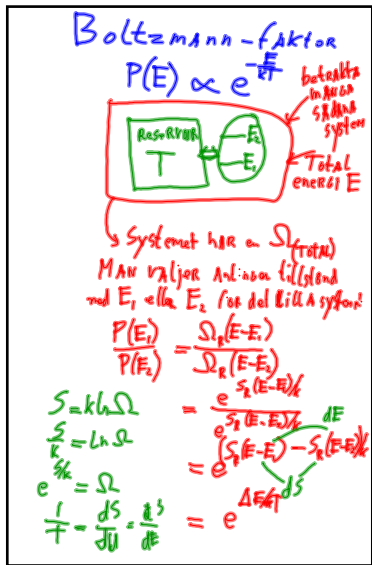 Boltzmann-faktor
P(E) ∝ e^{-E/kT}
betrakta
många
sådana
system
Reservoar
T
E₂
E₁
Total
energi E
Systemet har en Ω(total)
Man väljer antingen tillstånd
med E₁ eller E₂ för det lilla systemet
P(E₁)/P(E₂) = Ω_R(E-E₁)/Ω_R(E-E₂)
S = k ln Ω
= e^{S_R(E-E₁)/k}/e^{S_R(E-E₂)/k}
dE
S/k = Ln Ω
= e^{(S_R(E-E₁) - S_R(E-E₂)/k}
e^{S/k} = Ω
dS
1/T = dS/dU = dS/dE
= e^{ΔE/kT}